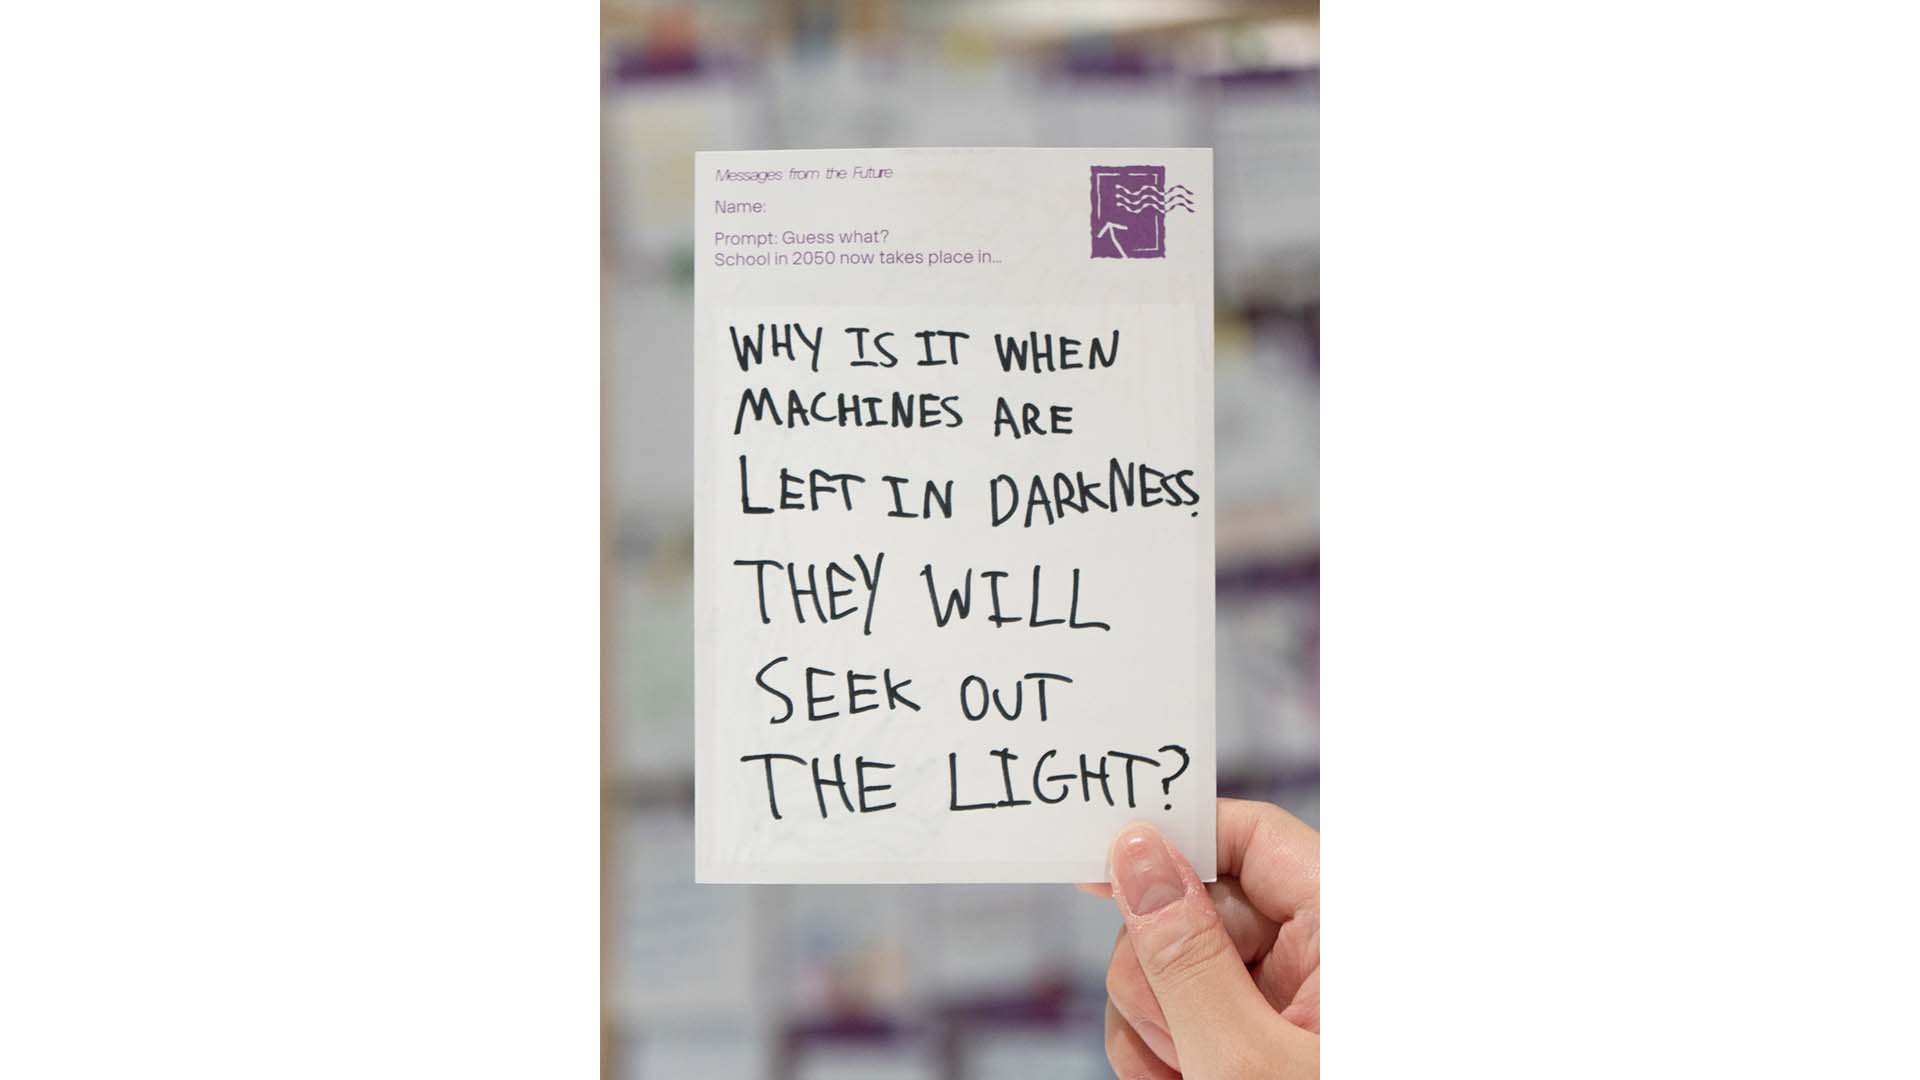 Messages from the Future
Name:
Prompt: Guess what?
School in 2050 now takes place in...
WHY IS IT WHEN
MACHINES ARE
LEFT IN DARKNESS.
THEY WILL
SEEK OUT
THE LIGHT?